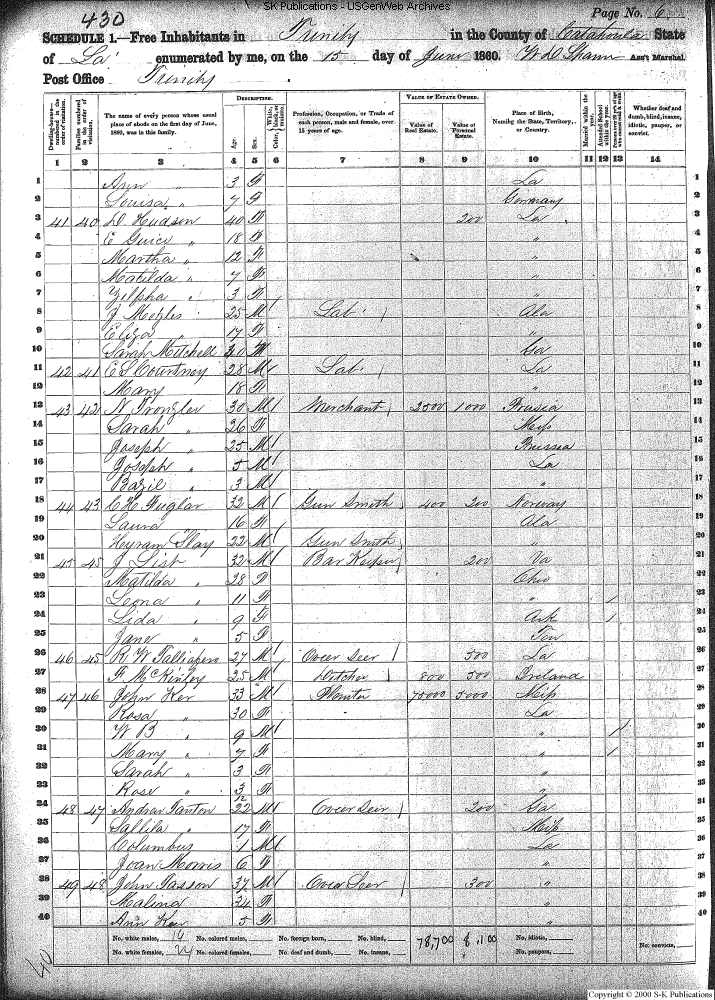 SK Publications - USGenWeb Archives
430
Page No. 6
SCHEDULE 1.—Free Inhabitants in Trinity in the County of Catahoula State
of La enumerated by me, on the 15 day of June 1860. Ass't Marshal.
Post Office Trinity
Dwelling-houses—numbered in the order of visitation.
Families numbered in the order of visitation.
The name of every person whose usual place of abode on the first day of June, 1860, was in this family.
DESCRIPTION.
Age.
Sex.
Color, White, black, or mulatto.
Profession, Occupation, or Trade of each person, male and female, over 15 years of age.
VALUE OF ESTATE OWNED.
Value of Real Estate.
Value of Personal Estate.
Place of Birth, Naming the State, Territory, or Country.
Married within the year.
Attended School within the year.
Whether deaf and dumb, blind, insane, idiotic, pauper, or convict.
1 2 3 4 5 6 7 8 9 10 11 12 13 14
1 Ann " 3 F La 1
2 Louisa " 7 F Germany 2
3 41 40 D Hudson 40 F 200 La 3
4 E Guice " 18 F " 4
5 Martha " 12 F " 5
6 Matilda " 7 F " 6
7 Zilpha " 3 F " 7
8 25 M Lab Ala 8
9 Eliza " 17 F " 9
10 Sarah Mitchell Ga 10
11 42 41 E S Courtney 28 M Lab La 11
12 Mary 18 F " 12
13 43 42 30 M Merchant 2500 1000 Prusia 13
14 Sarah " 26 F Miss 14
15 Joseph " 25 M Prussea 15
16 Joseph " 5 M La 16
17 Bazil " 3 M " 17
18 44 43 C H Fuglar 32 M Gun Smith 400 200 Norway 18
19 Laura " 16 F Ala 19
20 Hyram Slay 22 M Gun Smith " 20
21 45 45 J List 32 M Bar Keeper 200 Va 21
22 Matilda " 28 F Ohio 22
23 Leona " 11 F " 1 23
24 Lida " 9 F Ark 1 24
25 Jane " 5 F Ten 25
26 46 45 R W Talliafero 27 M Over Seer 500 La 26
27 F McKinley 25 M Ditcher 800 500 Ireland 27
28 47 46 John Ker 33 M Planter 75000 5000 Miss 28
29 Rosa " 30 F La 29
30 W B " 9 M " 1 30
31 Mary " 7 F " 1 31
32 Sarah " 3 F " 32
33 Rose " F " 33
34 48 47 Andrew Tanton 22 M Over Seer 200 Ga 34
35 Sallila " 17 F Miss 35
36 Columbus 1 M La 36
37 Joan Morris 6 F " 37
38 49 48 John Tasson 37 M Over Seer 300 " 38
39 Malena 34 F " 39
40 Ann Ker 5 F " 40
No. white males, 14 No. colored males, No. foreign born, No. blind, 78,700 8,100 No. idiotic, No. convicts,
No. white females, No. colored females, No. deaf and dumb, No. insane, No. paupers,
40
Copyright © 2000 S-K Publications